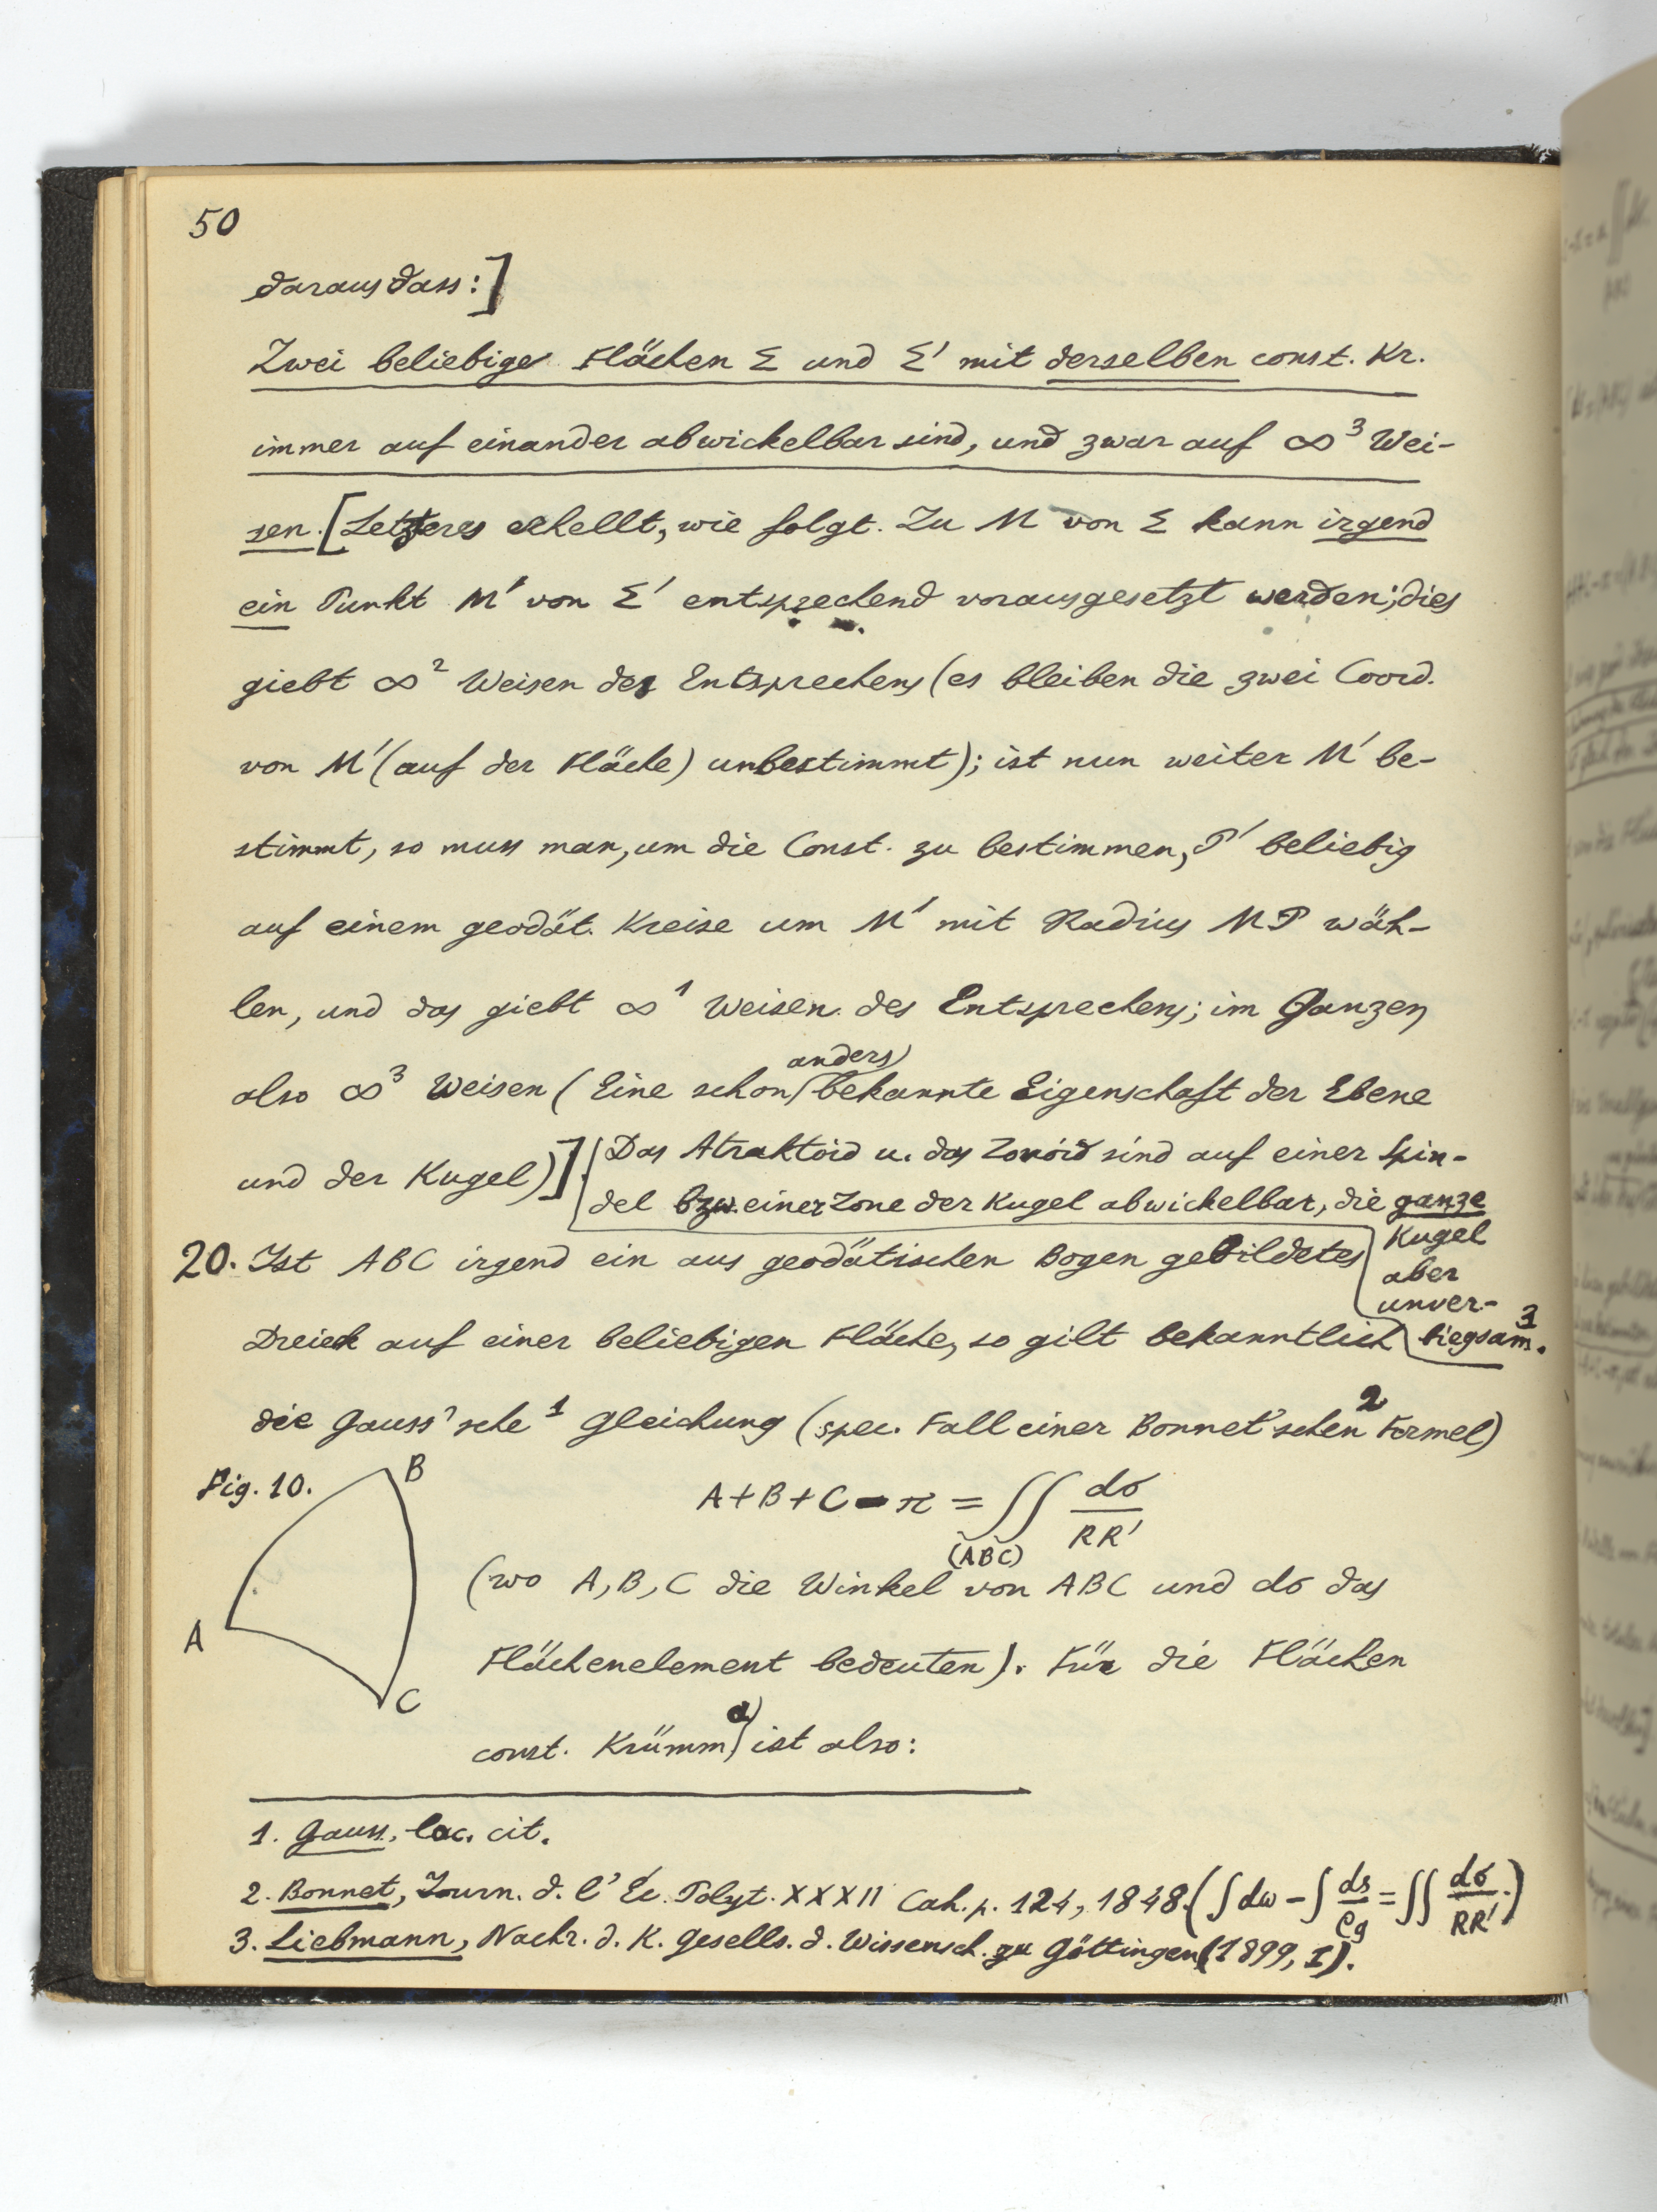 50
daraus dass:]
Zwei beliebige Flächen Σ und Σ' mit derselben const. Kr.
immer auf einander abwickelbar sind, und zwar auf ∞³ Wei-
sen. [Letzteres erhellt, wie folgt. Zu M von Σ kann irgend
ein Punkt M' von Σ' entsprechend vorausgesetzt werden; dies
giebt ∞² Weisen des Entsprechens (es bleiben die zwei Coord.
von M' (auf der Fläche) unbestimmt); ist nun weiter M' be-
stimmt, so muss man, um die Const. zu bestimmen, P' beliebig
auf einem geodät. Kreise um M' mit Radius MP wäh-
len, und das giebt ∞¹ Weisen des Entsprechens; im Ganzen
anders
also ∞³ Weisen (Eine schon bekannte Eigenschaft der Ebene
und der Kugel)].
Das Atraktoid u. das Zonoid sind auf einer Spin-
del bzw. einer Zone der Kugel abwickelbar, die ganze
Kugel
aber
unver-
biegsam³.
20. Ist ABC irgend ein aus geodätischen Bogen gebildetes
Dreieck auf einer beliebigen Fläche, so gilt bekanntlich
die Gauss'sche¹ Gleichung (spec. Fall einer Bonnet'schen² Formel)
Fig. 10.
B
A
C
A+B+C-π = ∬ dσ/RR'
(ABC)
(wo A, B, C die Winkel von ABC und dσ das
Flächenelement bedeuten). Für die Flächen
const. Krümm. ist also:
1. Gauss, loc. cit.
2. Bonnet, Journ. d. l'Éc. Polyt. XXXII Cah. p. 124, 1848. (∫dω - ∫ds/ρg = ∬ dσ/RR'.)
3. Liebmann, Nachr. d. K. Gesells. d. Wissensch. zu Göttingen (1899, I).